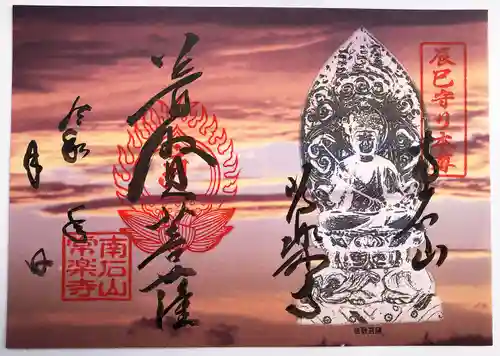 辰巳守り本尊
南石山
常楽寺
普賢菩薩
令和 年
月 日
南石山
常楽寺